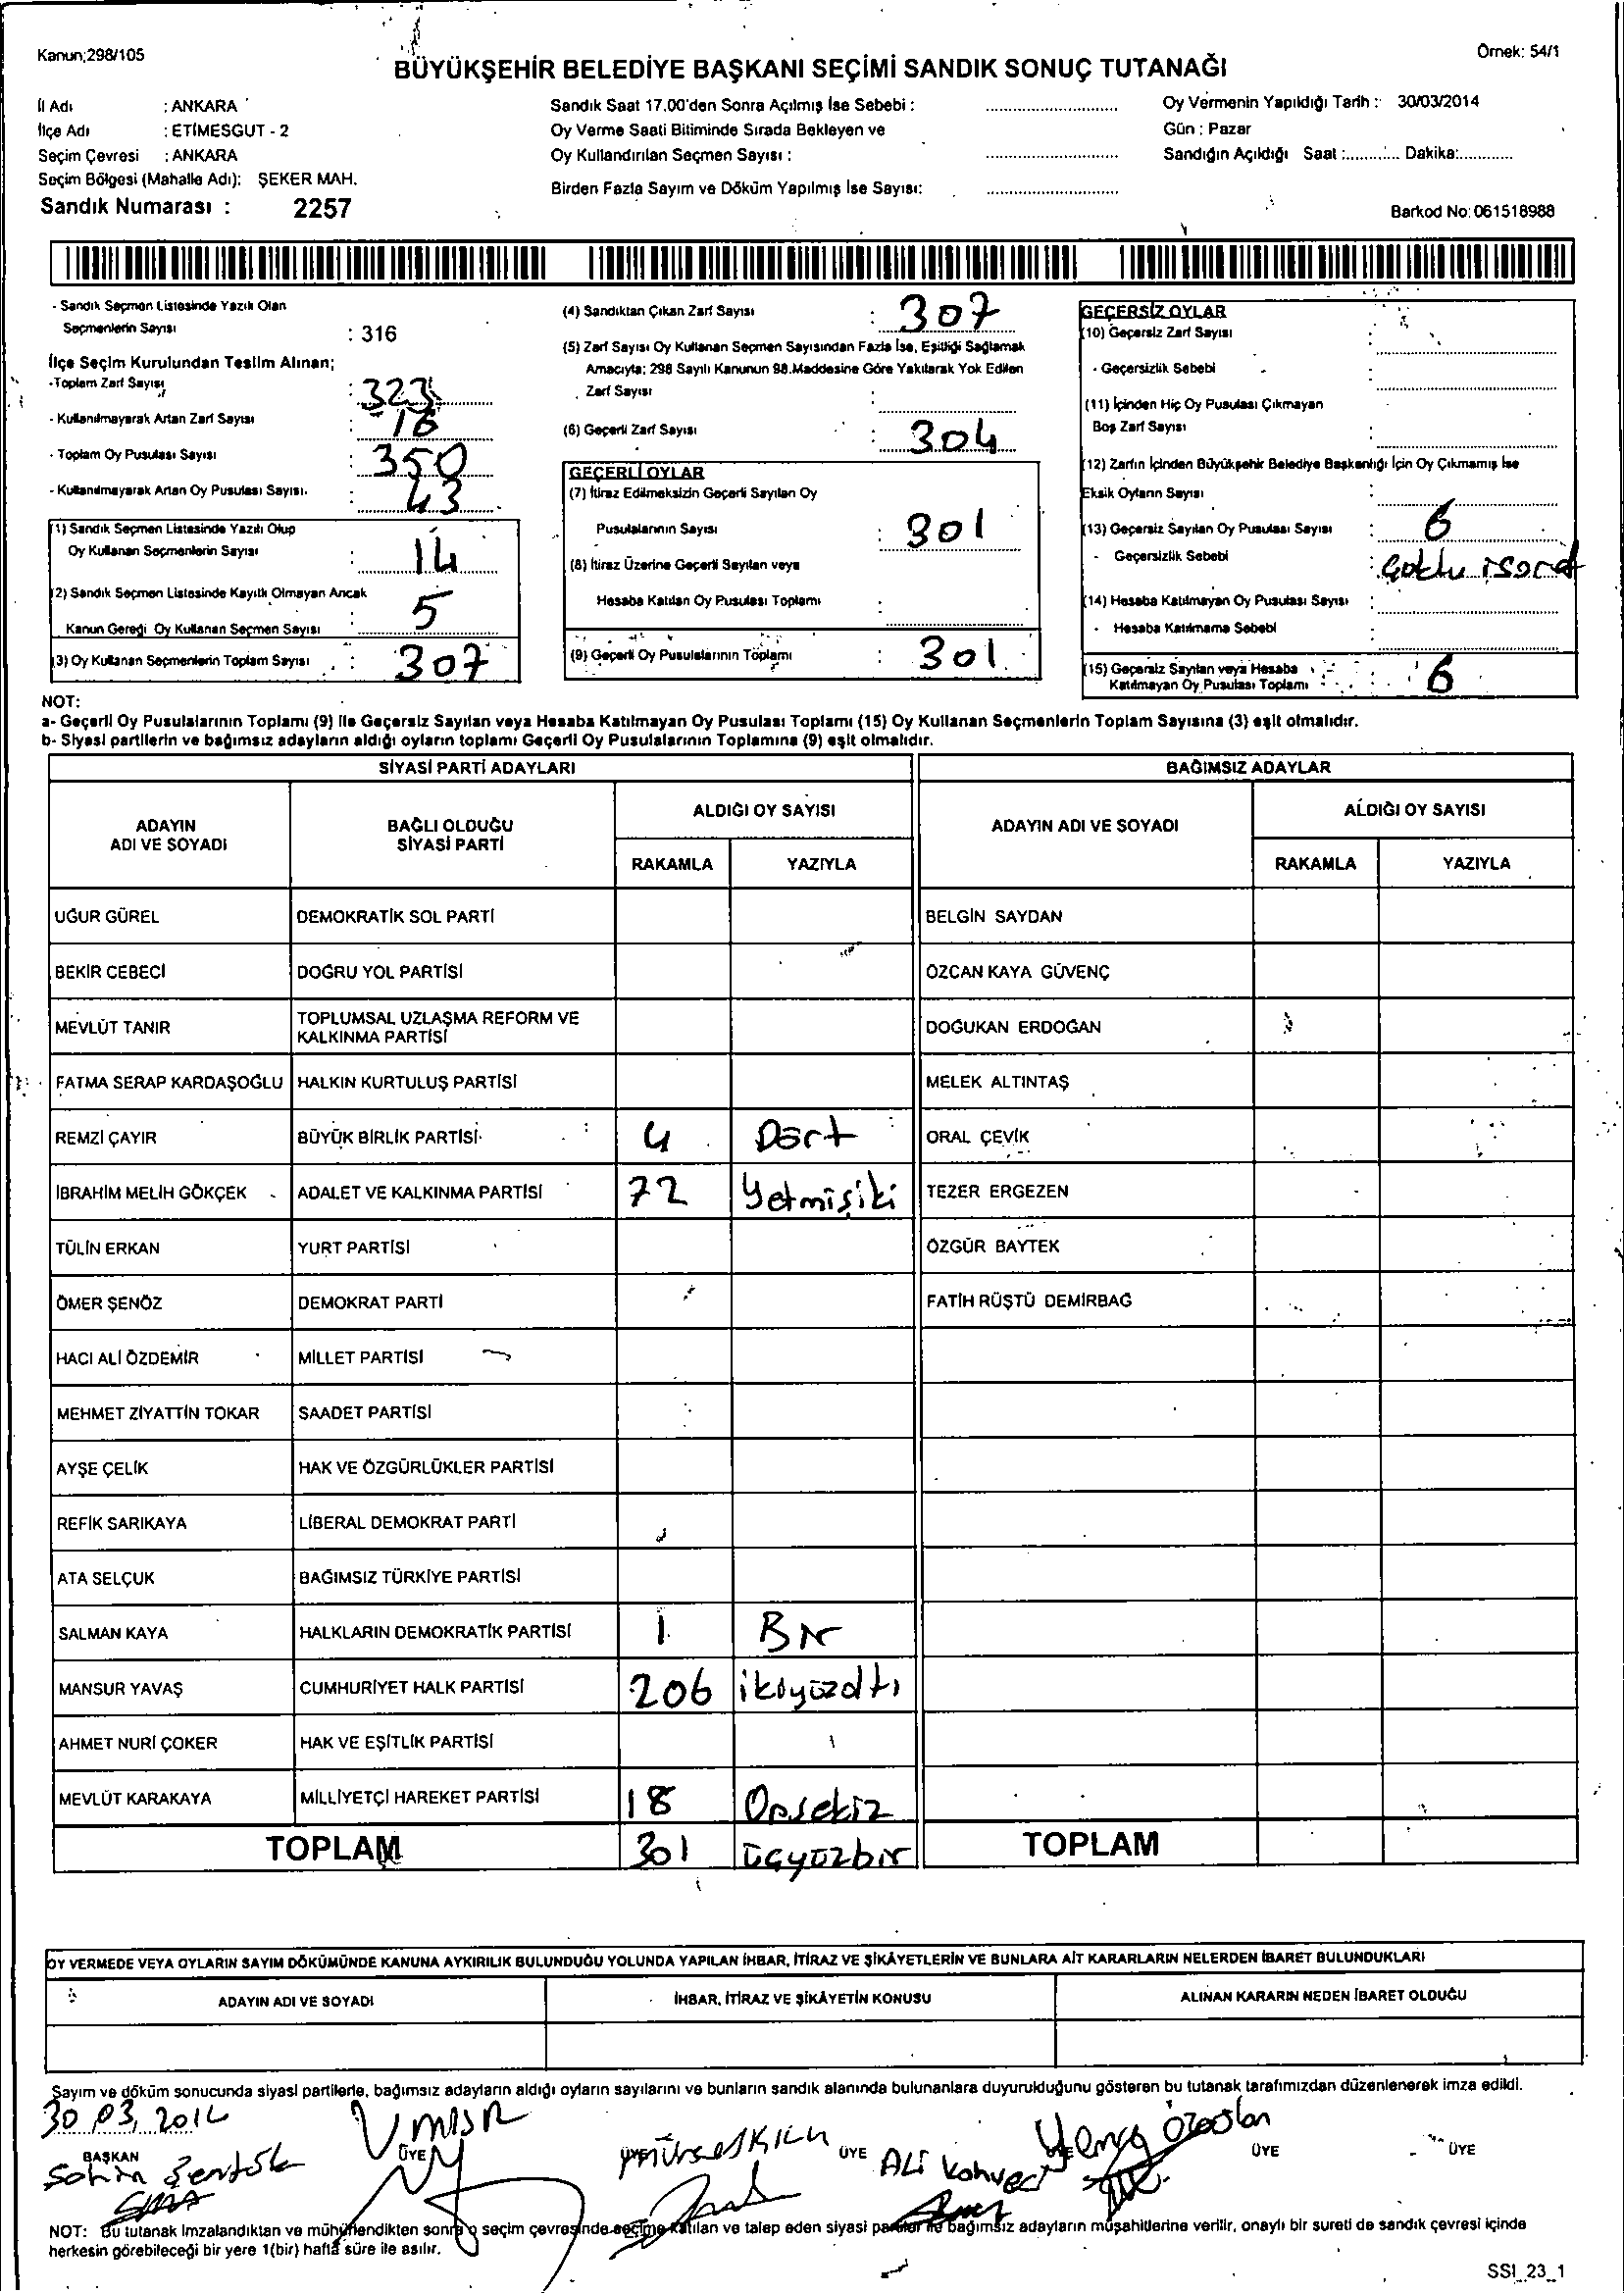 Kanun;298/105
Örnek: 54/1
BÜYÜKŞEHİR BELEDİYE BAŞKANI SEÇİMİ SANDIK SONUÇ TUTANAĞI
İl Adı : ANKARA
İlçe Adı : ETİMESGUT - 2
Seçim Çevresi : ANKARA
Seçim Bölgesi (Mahalle Adı): ŞEKER MAH.
Sandık Numarası : 2257
Sandık Saat 17.00'den Sonra Açılmış İse Sebebi :
Oy Verme Saati Bitiminde Sırada Bekleyen ve
Oy Kullandırılan Seçmen Sayısı :
Birden Fazla Sayım ve Döküm Yapılmış İse Sayısı:
Oy Vermenin Yapıldığı Tarih : 30/03/2014
Gün : Pazar
Sandığın Açıldığı Saat :............ Dakika:............
Barkod No: 061518988
- Sandık Seçmen Listesinde Yazılı Olan
Seçmenlerin Sayısı : 316
İlçe Seçim Kurulundan Teslim Alınan;
-Toplam Zarf Sayısı : 323
- Kullanılmayarak Artan Zarf Sayısı : 16
- Toplam Oy Pusulası Sayısı : 350
- Kullanılmayarak Artan Oy Pusulası Sayısı. : 43
(1) Sandık Seçmen Listesinde Yazılı Olup
Oy Kullanan Seçmenlerin Sayısı : 14
(2) Sandık Seçmen Listesinde Kayıtlı Olmayan Ancak
Kanun Gereği Oy Kullanan Seçmen Sayısı : 5
(3) Oy Kullanan Seçmenlerin Toplam Sayısı : 307
(4) Sandıktan Çıkan Zarf Sayısı : 307
(5) Zarf Sayısı Oy Kullanan Seçmen Sayısından Fazla İse, Eşitliği Sağlamak
Amacıyla; 298 Sayılı Kanunun 98.Maddesine Göre Yakılarak Yok Edilen
Zarf Sayısı :
(6) Geçerli Zarf Sayısı : 304
GEÇERLİ OYLAR
(7) İtiraz Edilmeksizin Geçerli Sayılan Oy
Pusulalarının Sayısı : 301
(8) İtiraz Üzerine Geçerli Sayılan veya
Hesaba Katılan Oy Pusulası Toplamı :
(9) Geçerli Oy Pusulalarının Toplamı : 301
GEÇERSİZ OYLAR
(10) Geçersiz Zarf Sayısı :
- Geçersizlik Sebebi :
(11) İçinden Hiç Oy Pusulası Çıkmayan
Boş Zarf Sayısı :
(12) Zarfın İçinden Büyükşehir Belediye Başkanlığı İçin Oy Çıkmamış İse
Eksik Oyların Sayısı :
(13) Geçersiz Sayılan Oy Pusulası Sayısı : 6
- Geçersizlik Sebebi : Çoklu işaret
(14) Hesaba Katılmayan Oy Pusulası Sayısı :
- Hesaba Katılmama Sebebi :
(15) Geçersiz Sayılan veya Hesaba
Katılmayan Oy Pusulası Toplamı : 6
NOT:
a- Geçerli Oy Pusulalarının Toplamı (9) ile Geçersiz Sayılan veya Hesaba Katılmayan Oy Pusulası Toplamı (15) Oy Kullanan Seçmenlerin Toplam Sayısına (3) eşit olmalıdır.
b- Siyasi partilerin ve bağımsız adayların aldığı oyların toplamı Geçerli Oy Pusulalarının Toplamına (9) eşit olmalıdır.
SİYASİ PARTİ ADAYLARI BAĞIMSIZ ADAYLAR
ADAYIN
ADI VE SOYADI
BAĞLI OLDUĞU
SİYASİ PARTİ
ALDIĞI OY SAYISI
RAKAMLA YAZIYLA
ADAYIN ADI VE SOYADI
ALDIĞI OY SAYISI
RAKAMLA YAZIYLA
UĞUR GÜREL DEMOKRATİK SOL PARTİ BELGİN SAYDAN
BEKİR CEBECİ DOĞRU YOL PARTİSİ ÖZCAN KAYA GÜVENÇ
MEVLÜT TANIR TOPLUMSAL UZLAŞMA REFORM VE
KALKINMA PARTİSİ DOĞUKAN ERDOĞAN
FATMA SERAP KARDAŞOĞLU HALKIN KURTULUŞ PARTİSİ MELEK ALTINTAŞ
REMZİ ÇAYIR BÜYÜK BİRLİK PARTİSİ 4 Dört ORAL ÇEVİK
İBRAHİM MELİH GÖKÇEK ADALET VE KALKINMA PARTİSİ 72 Yetmişiki TEZER ERGEZEN
TÜLİN ERKAN YURT PARTİSİ ÖZGÜR BAYTEK
ÖMER ŞENÖZ DEMOKRAT PARTİ FATİH RÜŞTÜ DEMİRBAĞ
HACI ALİ ÖZDEMİR MİLLET PARTİSİ
MEHMET ZİYATTİN TOKAR SAADET PARTİSİ
AYŞE ÇELİK HAK VE ÖZGÜRLÜKLER PARTİSİ
REFİK SARIKAYA LİBERAL DEMOKRAT PARTİ
ATA SELÇUK BAĞIMSIZ TÜRKİYE PARTİSİ
SALMAN KAYA HALKLARIN DEMOKRATİK PARTİSİ 1 Bir
MANSUR YAVAŞ CUMHURİYET HALK PARTİSİ 206 ikiyüzaltı
AHMET NURİ ÇOKER HAK VE EŞİTLİK PARTİSİ
MEVLÜT KARAKAYA MİLLİYETÇİ HAREKET PARTİSİ 18 Onsekiz
TOPLAM 301 üçyüzbir TOPLAM
OY VERMEDE VEYA OYLARIN SAYIM DÖKÜMÜNDE KANUNA AYKIRILIK BULUNDUĞU YOLUNDA YAPILAN İHBAR, İTİRAZ VE ŞİKÂYETLERİN VE BUNLARA AİT KARARLARIN NELERDEN İBARET BULUNDUKLARI
ADAYIN ADI VE SOYADI İHBAR, İTİRAZ VE ŞİKÂYETİN KONUSU ALINAN KARARIN NEDEN İBARET OLDUĞU
Sayım ve döküm sonucunda siyasi partilerle, bağımsız adayların aldığı oyların sayılarını ve bunların sandık alanında bulunanlara duyurulduğunu gösteren bu tutanak tarafımızdan düzenlenerek imza edildi.
30.03.2014
BAŞKAN ÜYE ÜYE ÜYE ÜYE ÜYE
Şentürk Ali Kahveci
NOT: Bu tutanak imzalandıktan ve mühürlendikten sonra o seçim çevresinde seçime katılan ve talep eden siyasi partiler ile bağımsız adayların müşahitlerine verilir, onaylı bir sureti de sandık çevresi içinde
herkesin görebileceği bir yere 1(bir) hafta süre ile asılır.
SSI_23_1